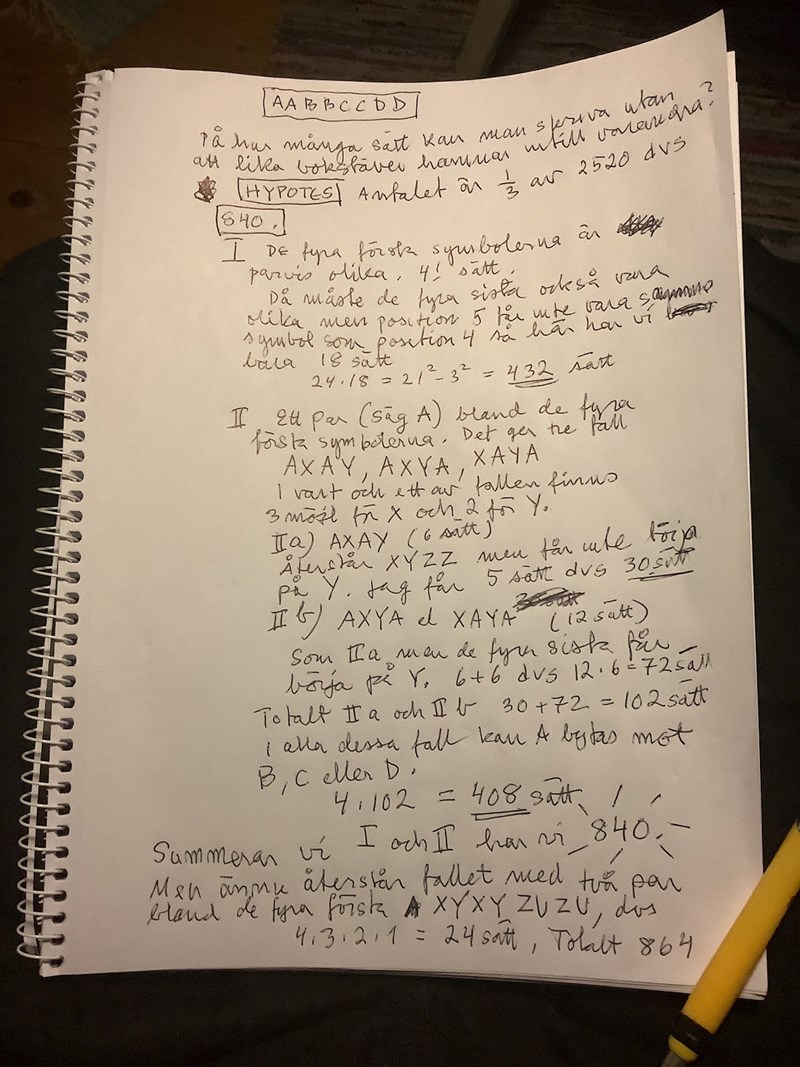 AABBCCDD
På hur många sätt kan man skriva utan
att lika bokstäver hamnar intill varandra?
HYPOTES Antalet är 1/3 av 2520 dvs
840.
I De fyra första symbolerna är
parvis olika. 4! sätt.
Då måste de fyra sista också vara
olika men position 5 får inte vara samma
symbol som position 4 så här har vi
bara 18 sätt
24·18 = 21² - 3² = 432 sätt
II Ett par (säg A) bland de fyra
första symbolerna. Det ger tre fall
AXAY, AXYA, XAYA
I vart och ett av fallen finns
3 möjl för X och 2 för Y.
IIa) AXAY (6 sätt)
Återstår XYZZ men får inte börja
på Y. Jag får 5 sätt dvs 30 sätt
IIb) AXYA el XAYA (12 sätt)
Som IIa men de fyra sista får
börja på Y. 6+6 dvs 12·6=72 sätt
Totalt IIa och IIb 30+72 = 102 sätt
I alla dessa fall kan A bytas mot
B, C eller D.
4·102 = 408 sätt
Summerar vi I och II har vi 840.
Men ännu återstår fallet med två par
bland de fyra första XYXY ZUZU, dvs
4·3·2·1 = 24 sätt, Totalt 864